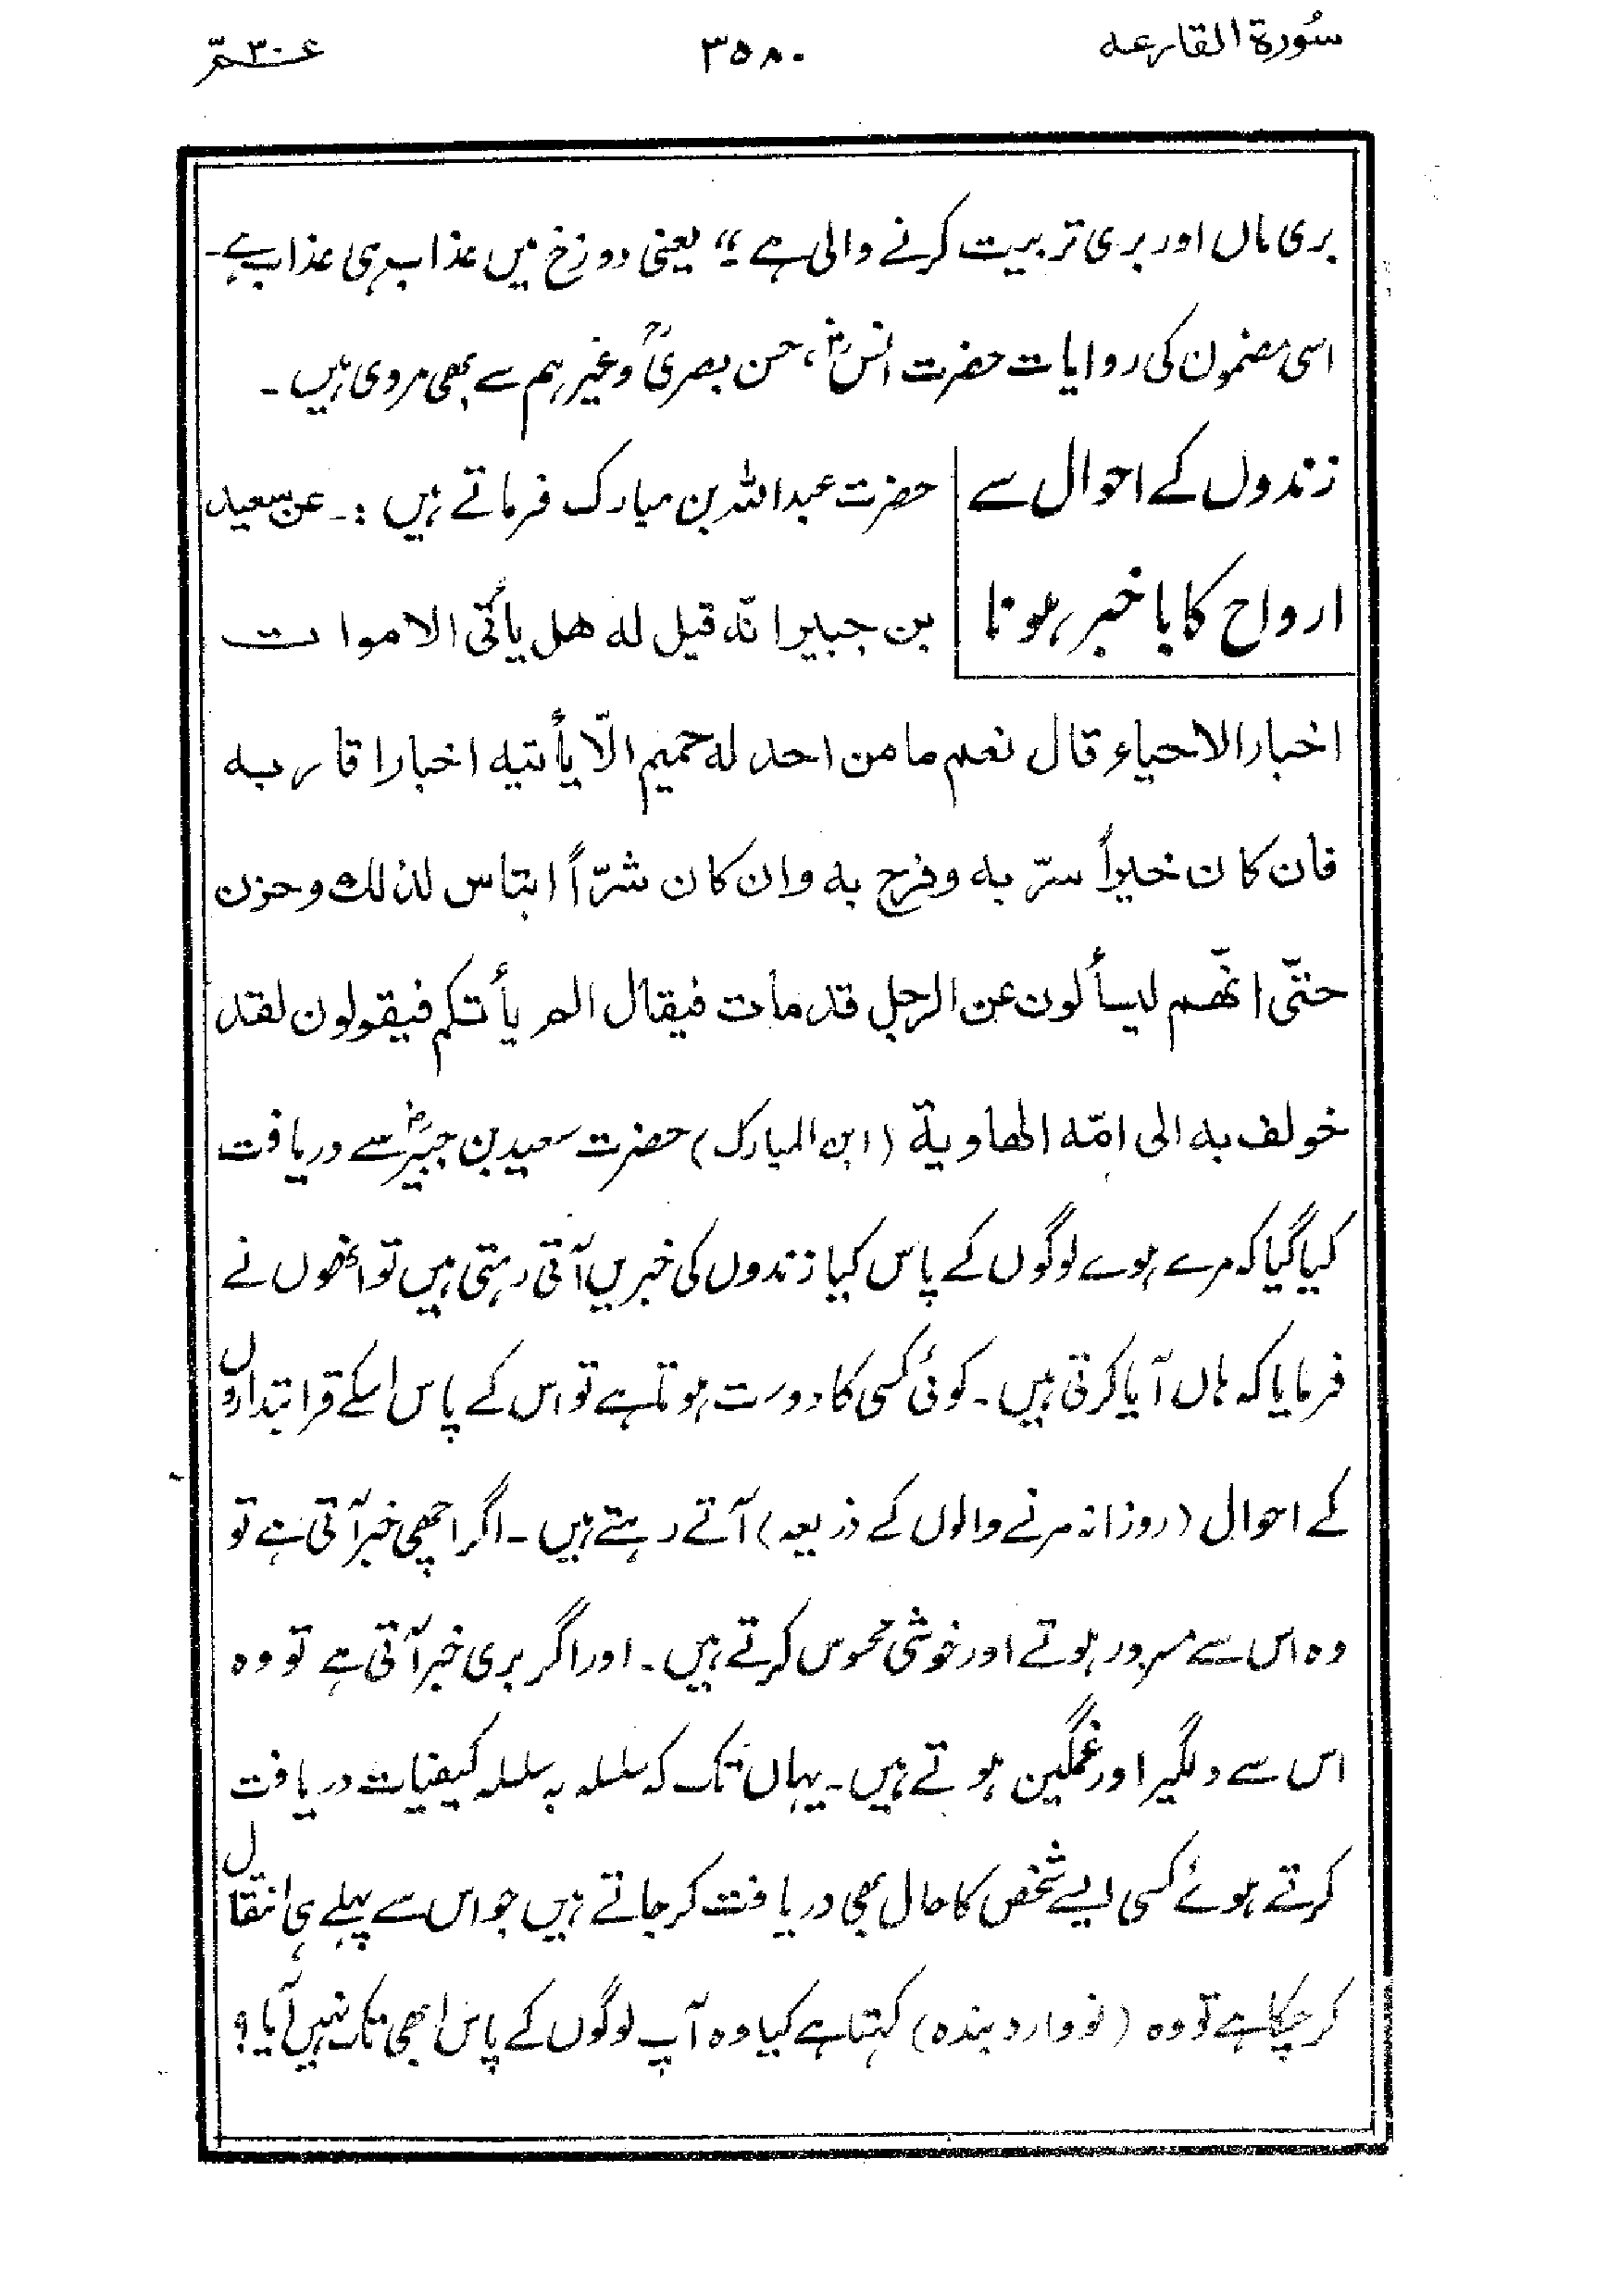 سُورۃ القارعہ
۳۵۸۰
عمّ ۳۰
بری ماں اور بری تربیت کرنے والی ہے۔" یعنی دوزخ میں عذاب ہی عذاب ہے۔
اسی مضمون کی روایات حضرت انسؓ، حسن بصریؒ وغیرہم سے بھی مروی ہیں۔
زندوں کے احوال سے
ارواح کا باخبر ہونا
حضرت عبداللہ بن مبارک فرماتے ہیں :۔ عن سعید
بن جبیر انّہ قیل لہ ھل یأتی الاموات
اخبار الاحیاء قال نعم ما من احد لہ حمیم الّا یأتیہ اخبار اقاربہ
فان کان خیراً سرّ بہ وفرح بہ وان کان شرّاً ابتاس لذلك وحزن
حتّی انّھم لیسألون عن الرجل قد مات فیقال الم یأتکم فیقولون لقد
خولف بہ الی امّہ الھاویة (ابن المبارک) حضرت سعید بن جبیرؓ سے دریافت
کیا گیا کہ مرے ہوے لوگوں کے پاس کیا زندوں کی خبریں آتی رہتی ہیں تو اُنھوں نے
فرمایا کہ ہاں آیا کرتی ہیں۔ کوئی کسی کا دوست ہوتا ہے تو اس کے پاس اسکے قرابتداروں
کے احوال (روزانہ مرنے والوں کے ذریعہ) آتے رہتے ہیں۔ اگر اچھی خبر آتی ہے تو
وہ اس سے مسرور ہوتے اور خوشی محسوس کرتے ہیں۔ اور اگر بری خبر آتی ہے تو وہ
اس سے دلگیر اور غمگین ہوتے ہیں۔ یہاں تک کہ سلسلہ بہ سلسلہ کیفیات دریافت
کرتے ہوئے کسی ایسے شخص کا حال بھی دریافت کر جاتے ہیں جو اس سے پہلے ہی انتقال
کر چکا ہے تو وہ (نو وارد بندہ) کہتا ہے کیا وہ آپ لوگوں کے پاس ابھی تک نہیں آیا؟